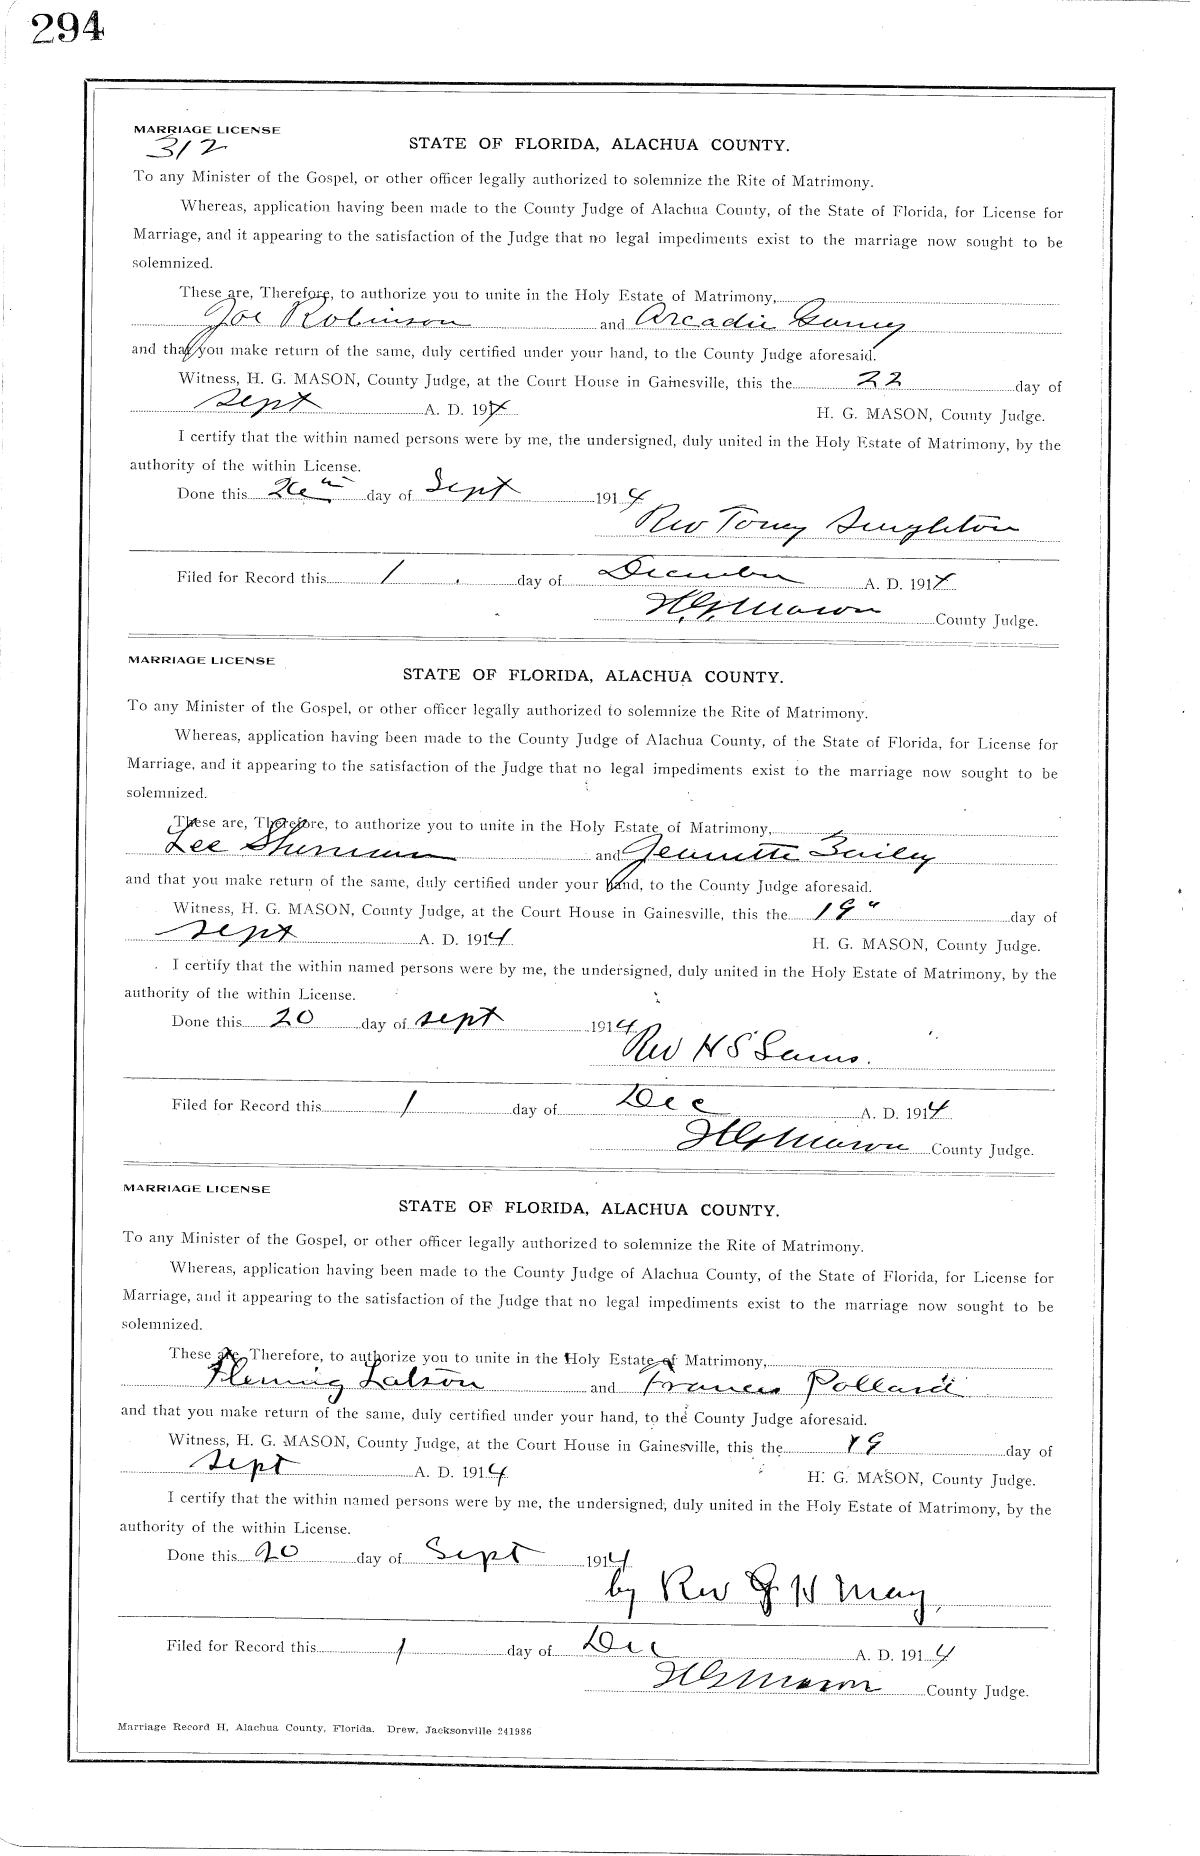 294
MARRIAGE LICENSE
312
STATE OF FLORIDA, ALACHUA COUNTY.
To any Minister of the Gospel, or other officer legally authorized to solemnize the Rite of Matrimony.
Whereas, application having been made to the County Judge of Alachua County, of the State of Florida, for License for
Marriage, and it appearing to the satisfaction of the Judge that no legal impediments exist to the marriage now sought to be
solemnized.
These are, Therefore, to authorize you to unite in the Holy Estate of Matrimony,
Joe Robinson and Arcadie
and that you make return of the same, duly certified under your hand, to the County Judge aforesaid.
Witness, H. G. MASON, County Judge, at the Court House in Gainesville, this the 22 day of
Sept A. D. 1914 H. G. MASON, County Judge.
I certify that the within named persons were by me, the undersigned, duly united in the Holy Estate of Matrimony, by the
authority of the within License.
Done this 26th day of Sept 1914
Rev Toney Singleton
Filed for Record this 1 day of December A. D. 1914
H. G. Mason County Judge.
MARRIAGE LICENSE
STATE OF FLORIDA, ALACHUA COUNTY.
To any Minister of the Gospel, or other officer legally authorized to solemnize the Rite of Matrimony.
Whereas, application having been made to the County Judge of Alachua County, of the State of Florida, for License for
Marriage, and it appearing to the satisfaction of the Judge that no legal impediments exist to the marriage now sought to be
solemnized.
These are, Therefore, to authorize you to unite in the Holy Estate of Matrimony,
Lee Sherman and Jennette Bailey
and that you make return of the same, duly certified under your hand, to the County Judge aforesaid.
Witness, H. G. MASON, County Judge, at the Court House in Gainesville, this the 19" day of
Sept A. D. 1914 H. G. MASON, County Judge.
I certify that the within named persons were by me, the undersigned, duly united in the Holy Estate of Matrimony, by the
authority of the within License.
Done this 20 day of Sept 1914
Rev H S Sams.
Filed for Record this 1 day of Dec A. D. 1914
H G Mason County Judge.
MARRIAGE LICENSE
STATE OF FLORIDA, ALACHUA COUNTY.
To any Minister of the Gospel, or other officer legally authorized to solemnize the Rite of Matrimony.
Whereas, application having been made to the County Judge of Alachua County, of the State of Florida, for License for
Marriage, and it appearing to the satisfaction of the Judge that no legal impediments exist to the marriage now sought to be
solemnized.
These are, Therefore, to authorize you to unite in the Holy Estate of Matrimony,
Fleming Latson and Frances Pollard
and that you make return of the same, duly certified under your hand, to the County Judge aforesaid.
Witness, H. G. MASON, County Judge, at the Court House in Gainesville, this the 19 day of
Sept A. D. 1914 H. G. MASON, County Judge.
I certify that the within named persons were by me, the undersigned, duly united in the Holy Estate of Matrimony, by the
authority of the within License.
Done this 20 day of Sept 1914
by Rev J H May,
Filed for Record this 1 day of Dec A. D. 1914
H G Mason County Judge.
Marriage Record H, Alachua County, Florida. Drew, Jacksonville 241986